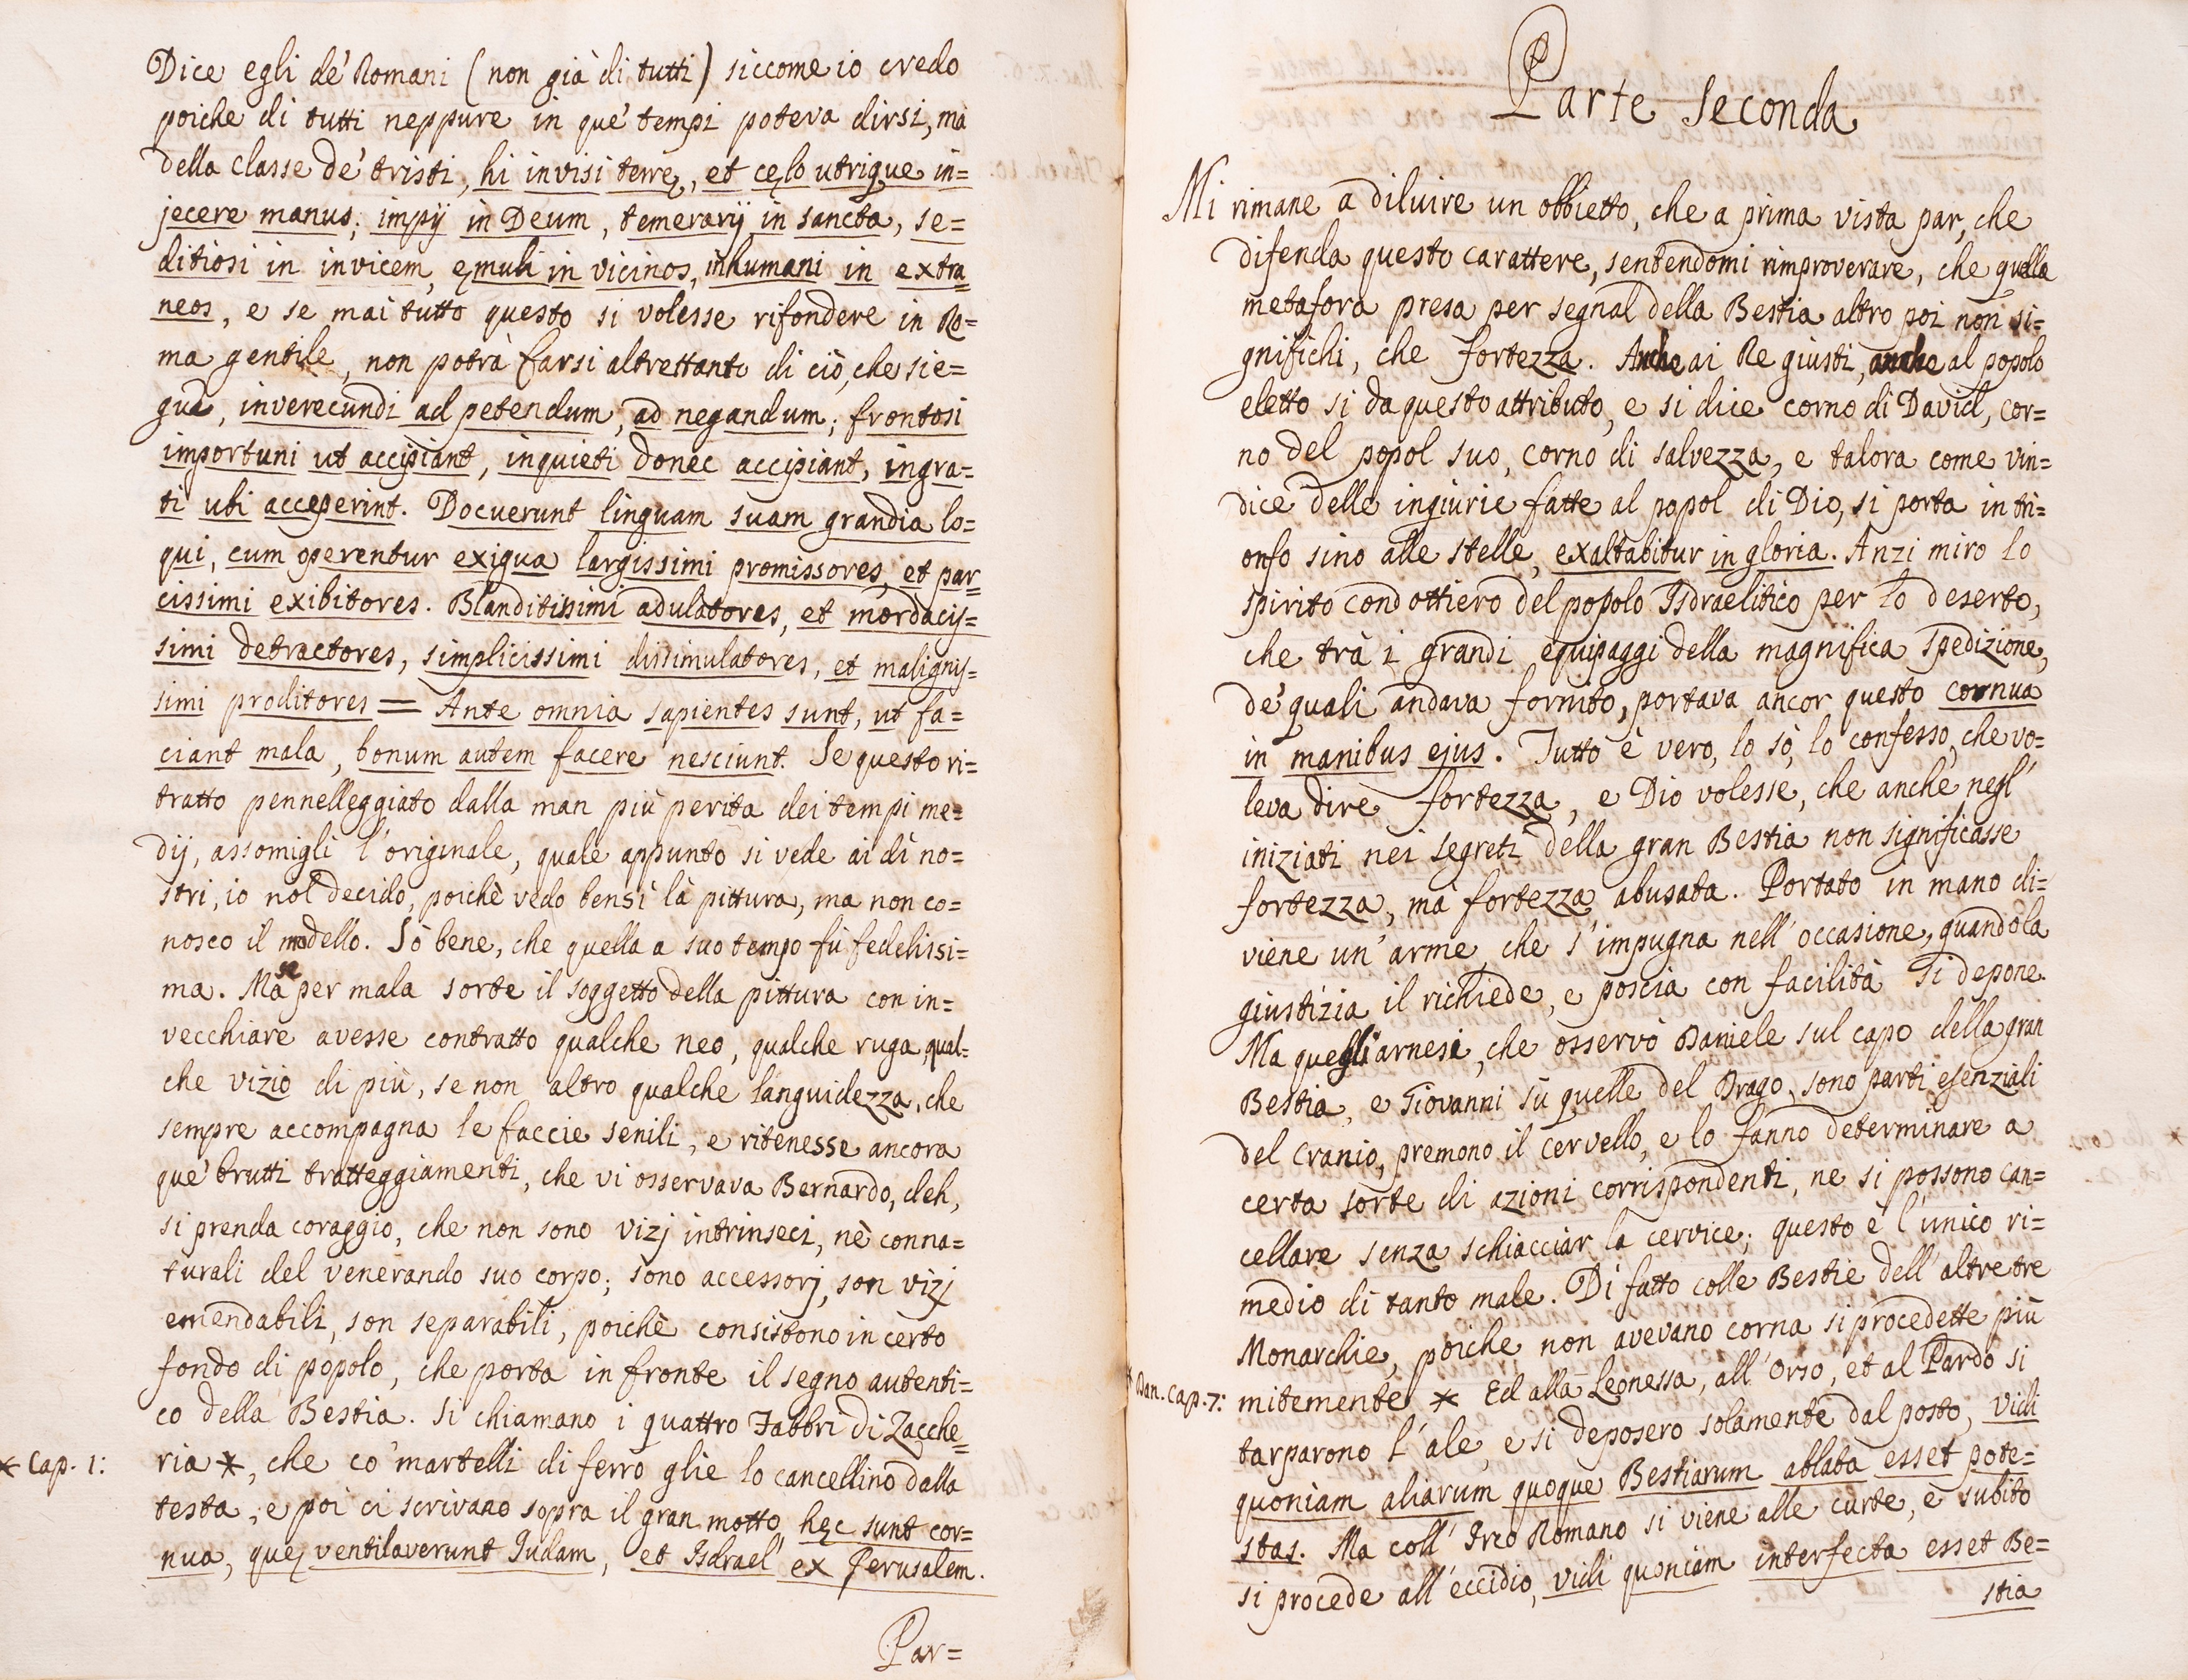 Dice egli de' Romani (non già di tutti) siccome io credo
poiche di tutti neppure in que' tempi poteva dirsi, mà
della classe de' tristi, hi invisi terrę, et cęlo utrique in=
jecere manus; impij in Deum, temerarij in sancta, se=
ditiosi in invicem, ęmuli in vicinos, inhumani in extra
neos, e se mai tutto questo si volesse rifondere in Ro=
ma gentile, non potrà farsi altrettanto di ciò, che sie=
gua, inverecundi ad petendum, ad negandum; frontosi
importuni ut accipiant, inquieti donec accipiant, ingra=
ti ubi acceperint. Docuerunt linguam suam grandia lo=
qui, cum operentur exigua largissimi promissores, et par
cissimi exibitores. Blanditissimi adulatores, et mordacis=
simi detractores, simplicissimi dissimulatores, et malignis=
simi proditores = Ante omnia sapientes sunt, ut fa=
ciant mala, bonum autem facere nesciunt. Se questo ri=
tratto pennelleggiato dalla man più perita dei tempi me=
dij, assomigli l'originale, quale appunto si vede ai dì no=
stri, io nol decido, poichè vedo bensì la pittura, ma non co=
nosco il modello. Sò bene, che quella a suo tempo fù fedelissi=
ma. Ma se per mala sorte il soggetto della pittura con in=
vecchiare avesse contratto qualche neo, qualche ruga, qual=
che vizio di più, se non altro qualche languidezza, che
sempre accompagna le faccie senili, e ritenesse ancora
que' brutti tratteggiamenti, che vi osservava Bernardo, deh,
si prenda coraggio, che non sono vizj intrinseci, nè conna=
turali del venerando suo corpo; sono accessorj, son vizj
emendabili, son separabili, poichè consistono in certo
fondo di popolo, che porta in fronte il segno autenti=
co della Bestia. Si chiamano i quattro Fabbri di Zacche=
* Cap. 1: ria *, che co' martelli di ferro glie lo cancellino dalla
testa, e poi ci scrivano sopra il gran motto hęc sunt cor=
nua, quę ventilaverunt Judam, et Isdrael ex Jerusalem.
Par=
Parte Seconda
Mi rimane a diluire un obbietto, che a prima vista par, che
difenda questo carattere, sentendomi rimproverare, che quella
metafora presa per segnal della Bestia altro poi non si=
gnifichi, che fortezza. Anche ai Re giusti, anche al popolo
eletto si da questo attributo, e si dice corno di David, cor=
no del popol suo, corno di salvezza, e talora come vin=
dice delle ingiurie fatte al popol di Dio, si porta in tri=
onfo sino alle stelle, exaltabitur in gloria. Anzi miro lo
spirito condottiero del popolo Isdraelitico per lo deserto,
che trà i grandi equipaggi della magnifica spedizione,
de' quali andava fornito, portava ancor questo cornua
in manibus ejus. Tutto è vero, lo sò, lo confesso, che vo=
leva dire fortezza, e Dio volesse, che anche negl'
iniziati nei segreti della gran Bestia non significasse
fortezza, mà fortezza abusata. Portato in mano di=
viene un' arme, che s'impugna nell'occasione, quando la
giustizia il richiede, e poscia con facilità si depone.
Ma quegli arnesi, che osservò Daniele sul capo della gran
Bestia, e Giovanni sù quelle del Drago, sono parti esenziali
del cranio, premono il cervello, e lo fanno determinare a
certa sorte di azioni corrispondenti, ne si possono can=
cellare senza schiacciar la cervice; questo è l'unico ri=
medio di tanto male. Di fatto colle Bestie dell'altre tre
Monarchie, poiche non avevano corna si procedette più
* Dan. Cap. 7: mitemente * Ed alla Leonessa, all'Orso, et al Pardo si
tarparono l'ale, e si deposero solamente dal posto, vidi
quoniam aliarum quoque Bestiarum ablata esset pote=
stas. Ma coll' Irco Romano si viene alle curte, e subito
si procede all'eccidio, vidi quoniam interfecta esset Be=
stia